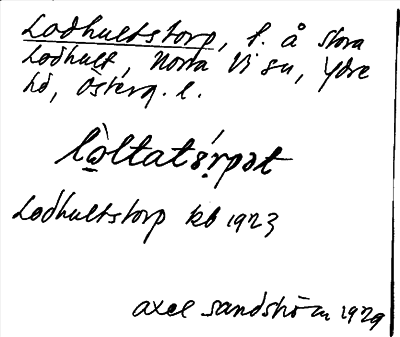 Lodhultstorp, l. å Stora
Lodhult, Norra Vi sn, Ydre
hd, Österg. l.
lò̱ltats´rpət
Lodhultstorp kb 1923
Axel Sandström 1929